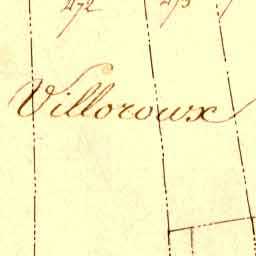 272 273
Villoroux